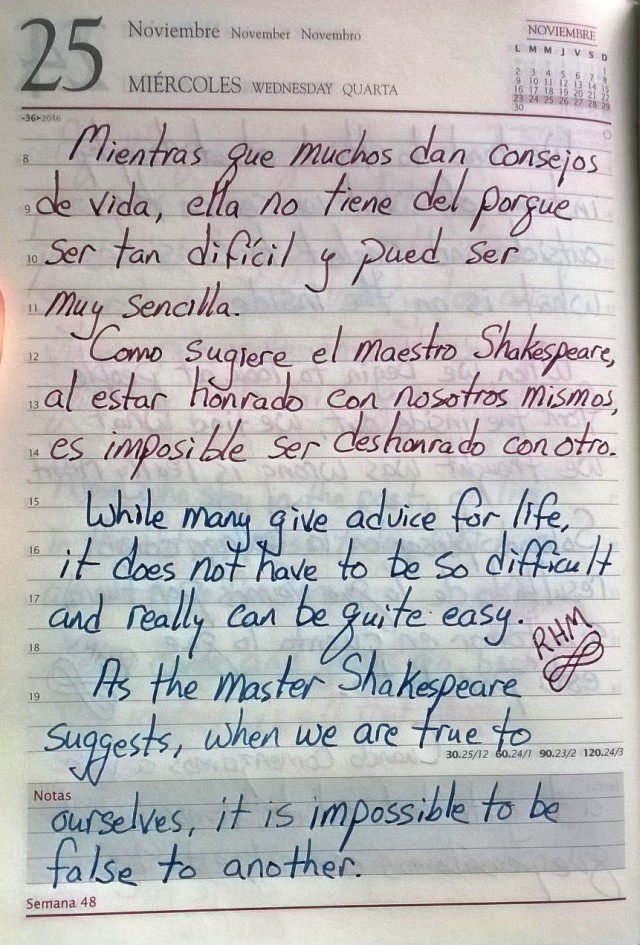 25
Noviembre November Novembro
MIÉRCOLES WEDNESDAY QUARTA
NOVIEMBRE
L M M J V S D
1
2 3 4 5 6 7 8
9 10 11 12 13 14 15
16 17 18 19 20 21 22
23 24 25 26 27 28 29
30
-36▸2016
8 Mientras que muchos dan consejos
9 de vida, ella no tiene del porque
10 ser tan difícil y pued ser
11 muy sencilla.
12 Como sugiere el maestro Shakespeare,
13 al estar honrado con nosotros mismos,
14 es imposible ser deshonrado con otro.
15 While many give advice for life,
16 it does not have to be so difficult
17 and really can be quite easy.
18 RHM
19 As the master Shakespeare
suggests, when we are true to
30.25/12 60.24/1 90.23/2 120.24/3
Notas
ourselves, it is impossible to be
false to another.
Semana 48